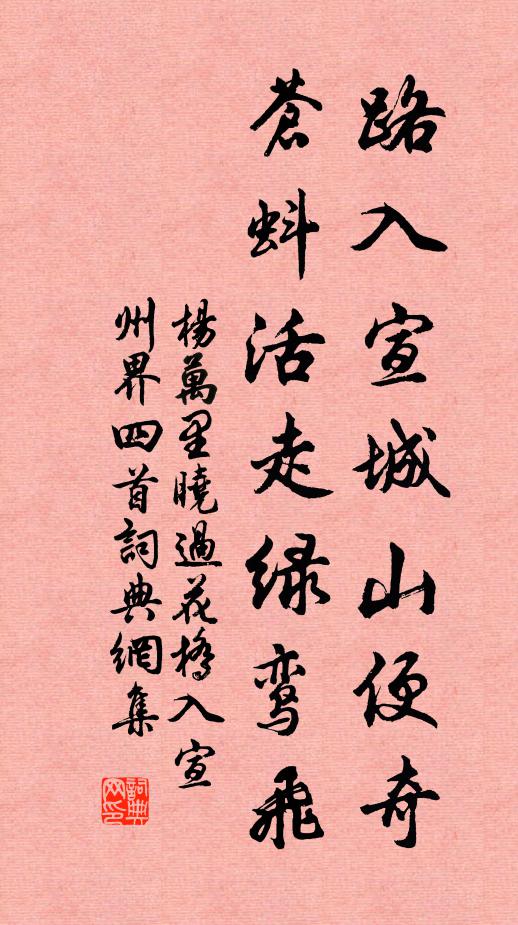 路入宣城山便奇
蒼蚪活走绿鸾飛
楊萬里曉過花橋入宣
州界四首詞典網集
詞典
网印